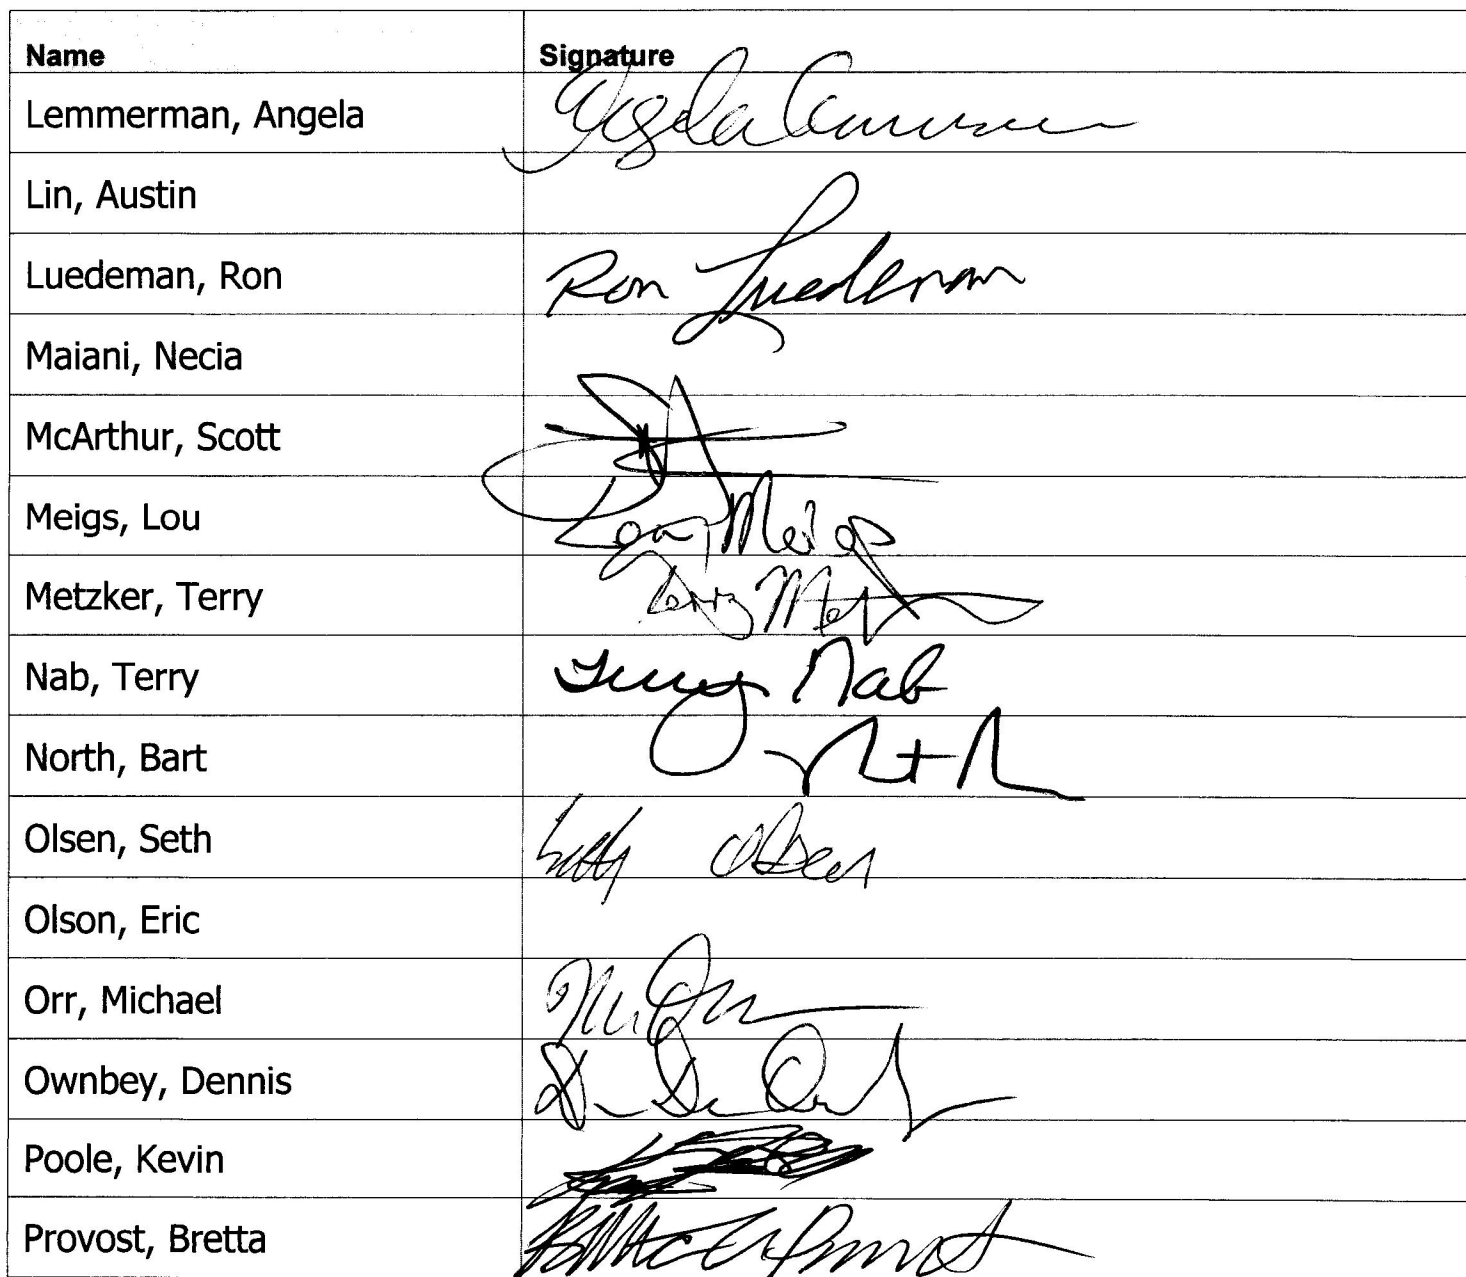 Name Signature
Lemmerman, Angela Angela
Lin, Austin
Luedeman, Ron Ron Luedeman
Maiani, Necia
McArthur, Scott
Meigs, Lou Meigs
Metzker, Terry Terry
Nab, Terry Terry Nab
North, Bart
Olsen, Seth Seth Olsen
Olson, Eric
Orr, Michael
Ownbey, Dennis
Poole, Kevin
Provost, Bretta